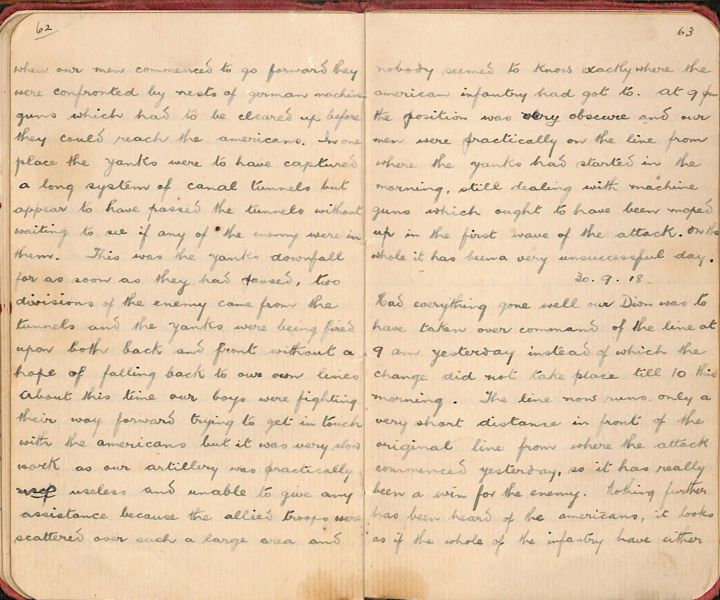 62
when our men commenced to go forward they
were confronted by nests of german machine
guns which had to be cleared up before
they could reach the americans. In one
place the yanks were to have captured
a long system of canal tunnels but
appear to have passed the tunnels without
waiting to see if any of the enemy were in
them. This was the yanks downfall
for as soon as they had passed, two
divisions of the enemy came from the
tunnels and the yanks were being fired
upon both back and front without a
hope of falling back to our own lines
About this time our boys were fighting
their way forward trying to get in touch
with the americans but it was very slow
work as our artillery was practically
useless and unable to give any
assistance because the allied troops were
scattered over such a large area and
63
nobody seemed to know exactly where the
american infantry had got to. At 9 pm
the position was very obscure and our
men were practically on the line from
where the yanks had started in the
morning, still dealing with machine
guns which ought to have been moped
up in the first wave of the attack. On the
whole it has been a very unsuccessful day.
30.9.18.
Had everything gone well our Divn was to
have taken over command of the line at
9 am yesterday instead of which the
change did not take place till 10 this
morning. The line now runs only a
very short distance in front of the
original line from where the attack
commenced yesterday, so it has really
been a win for the enemy. Nothing further
has been heard of the americans, it looks
as if the whole of the infantry have either